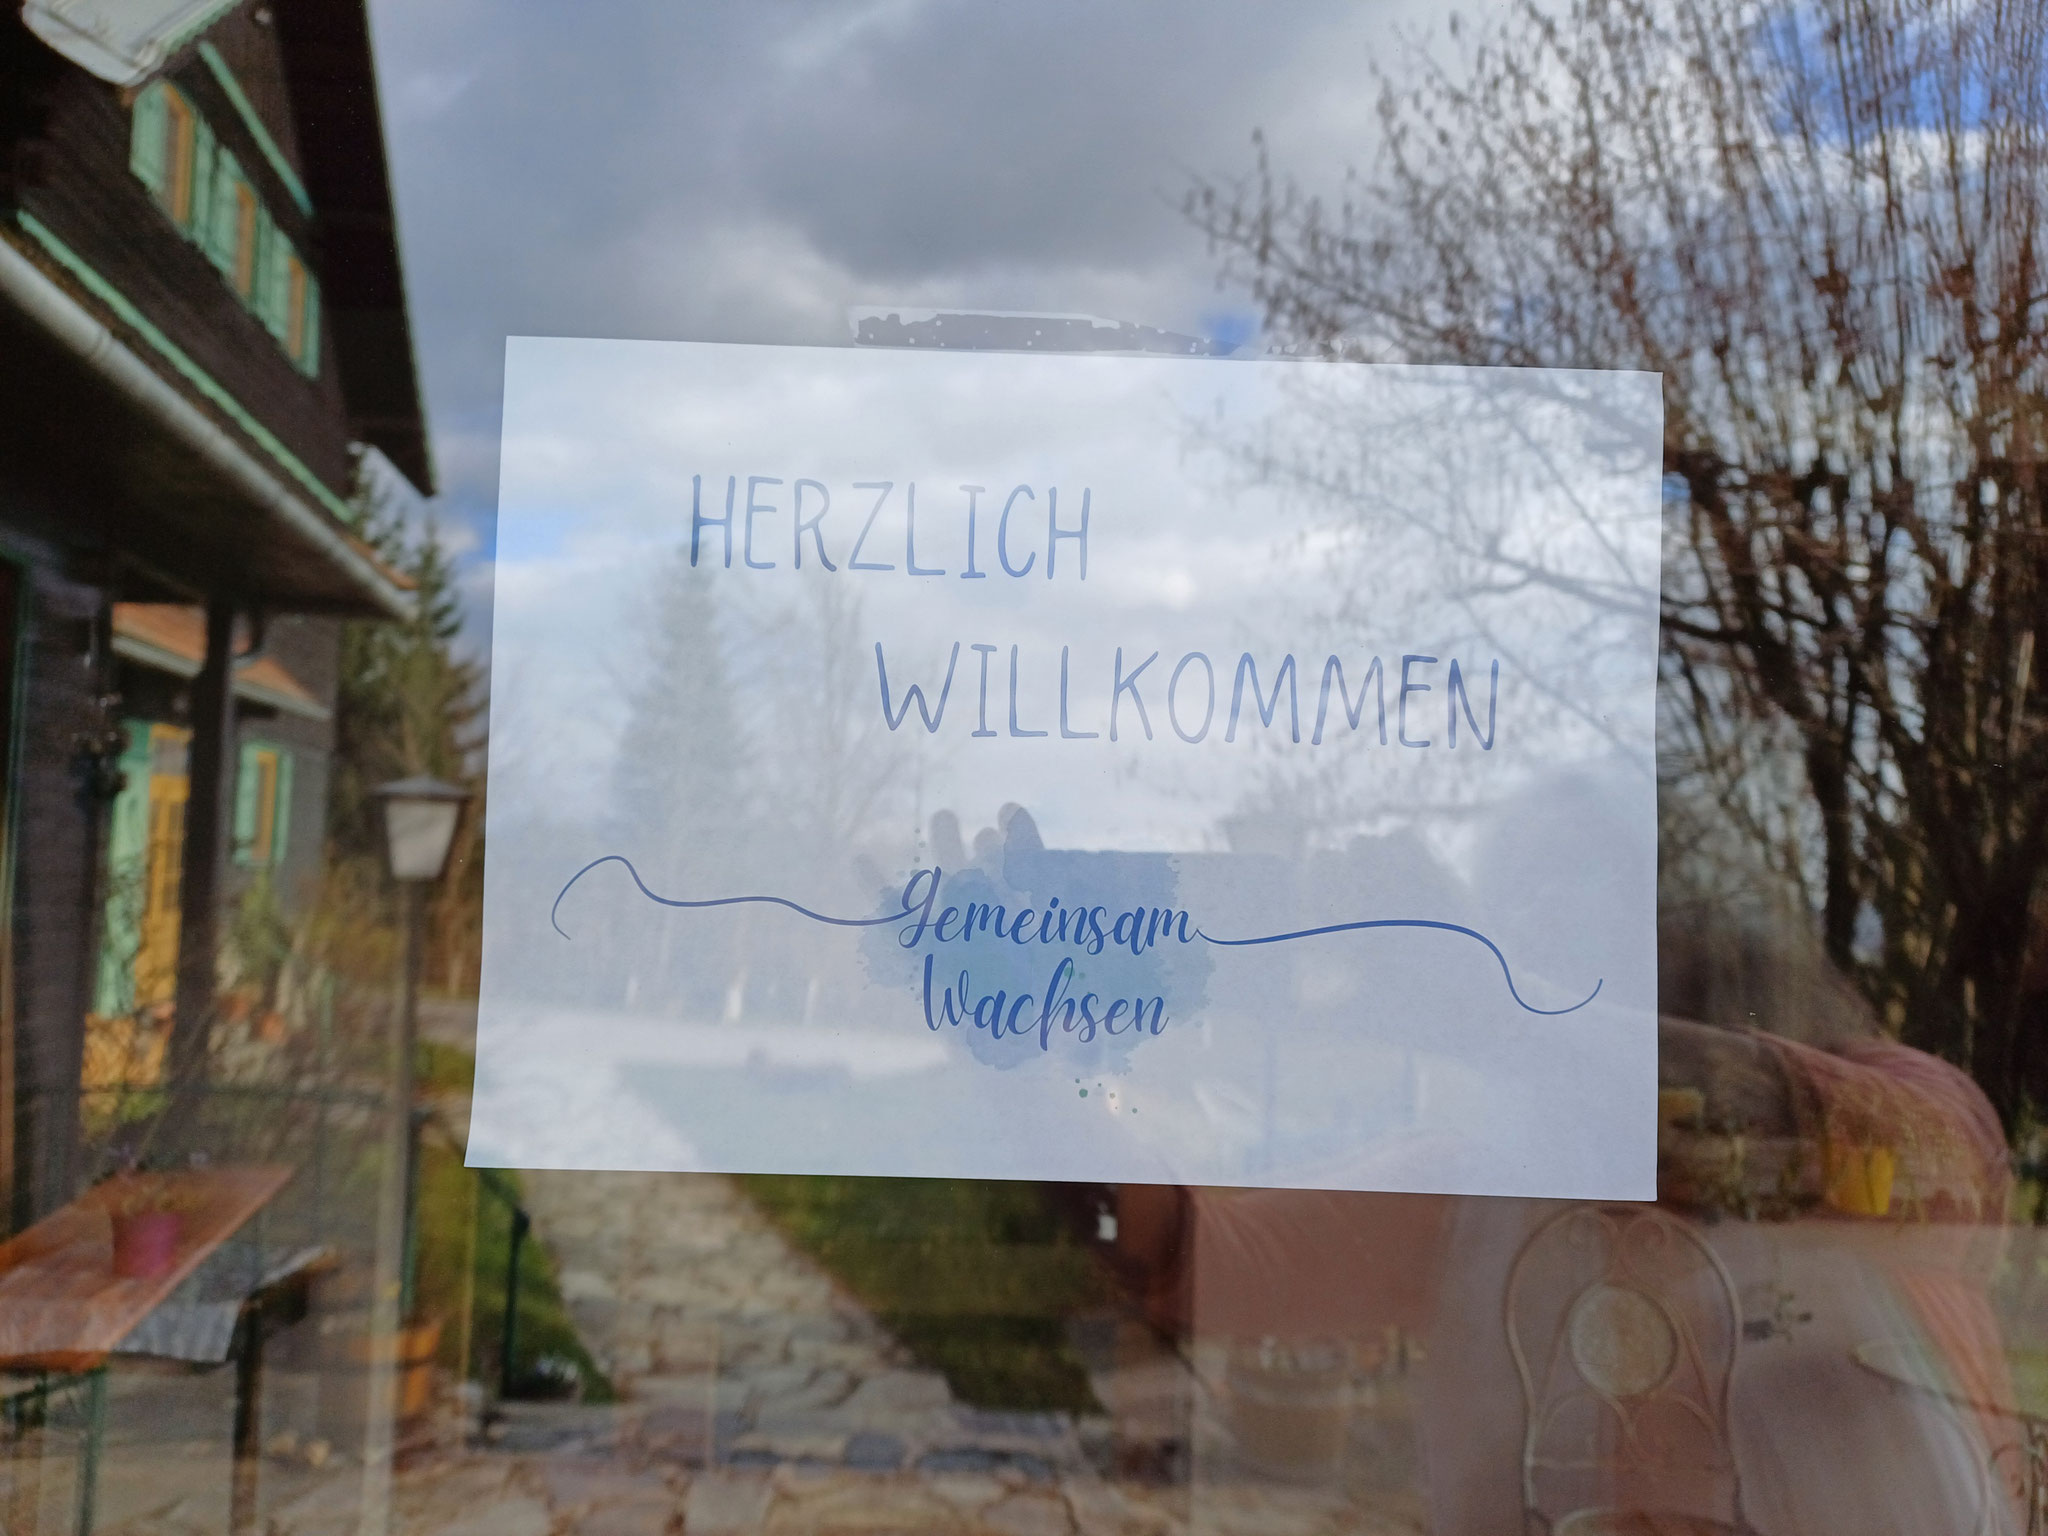 HERZLICH
WILLKOMMEN
gemeinsam
Wachsen